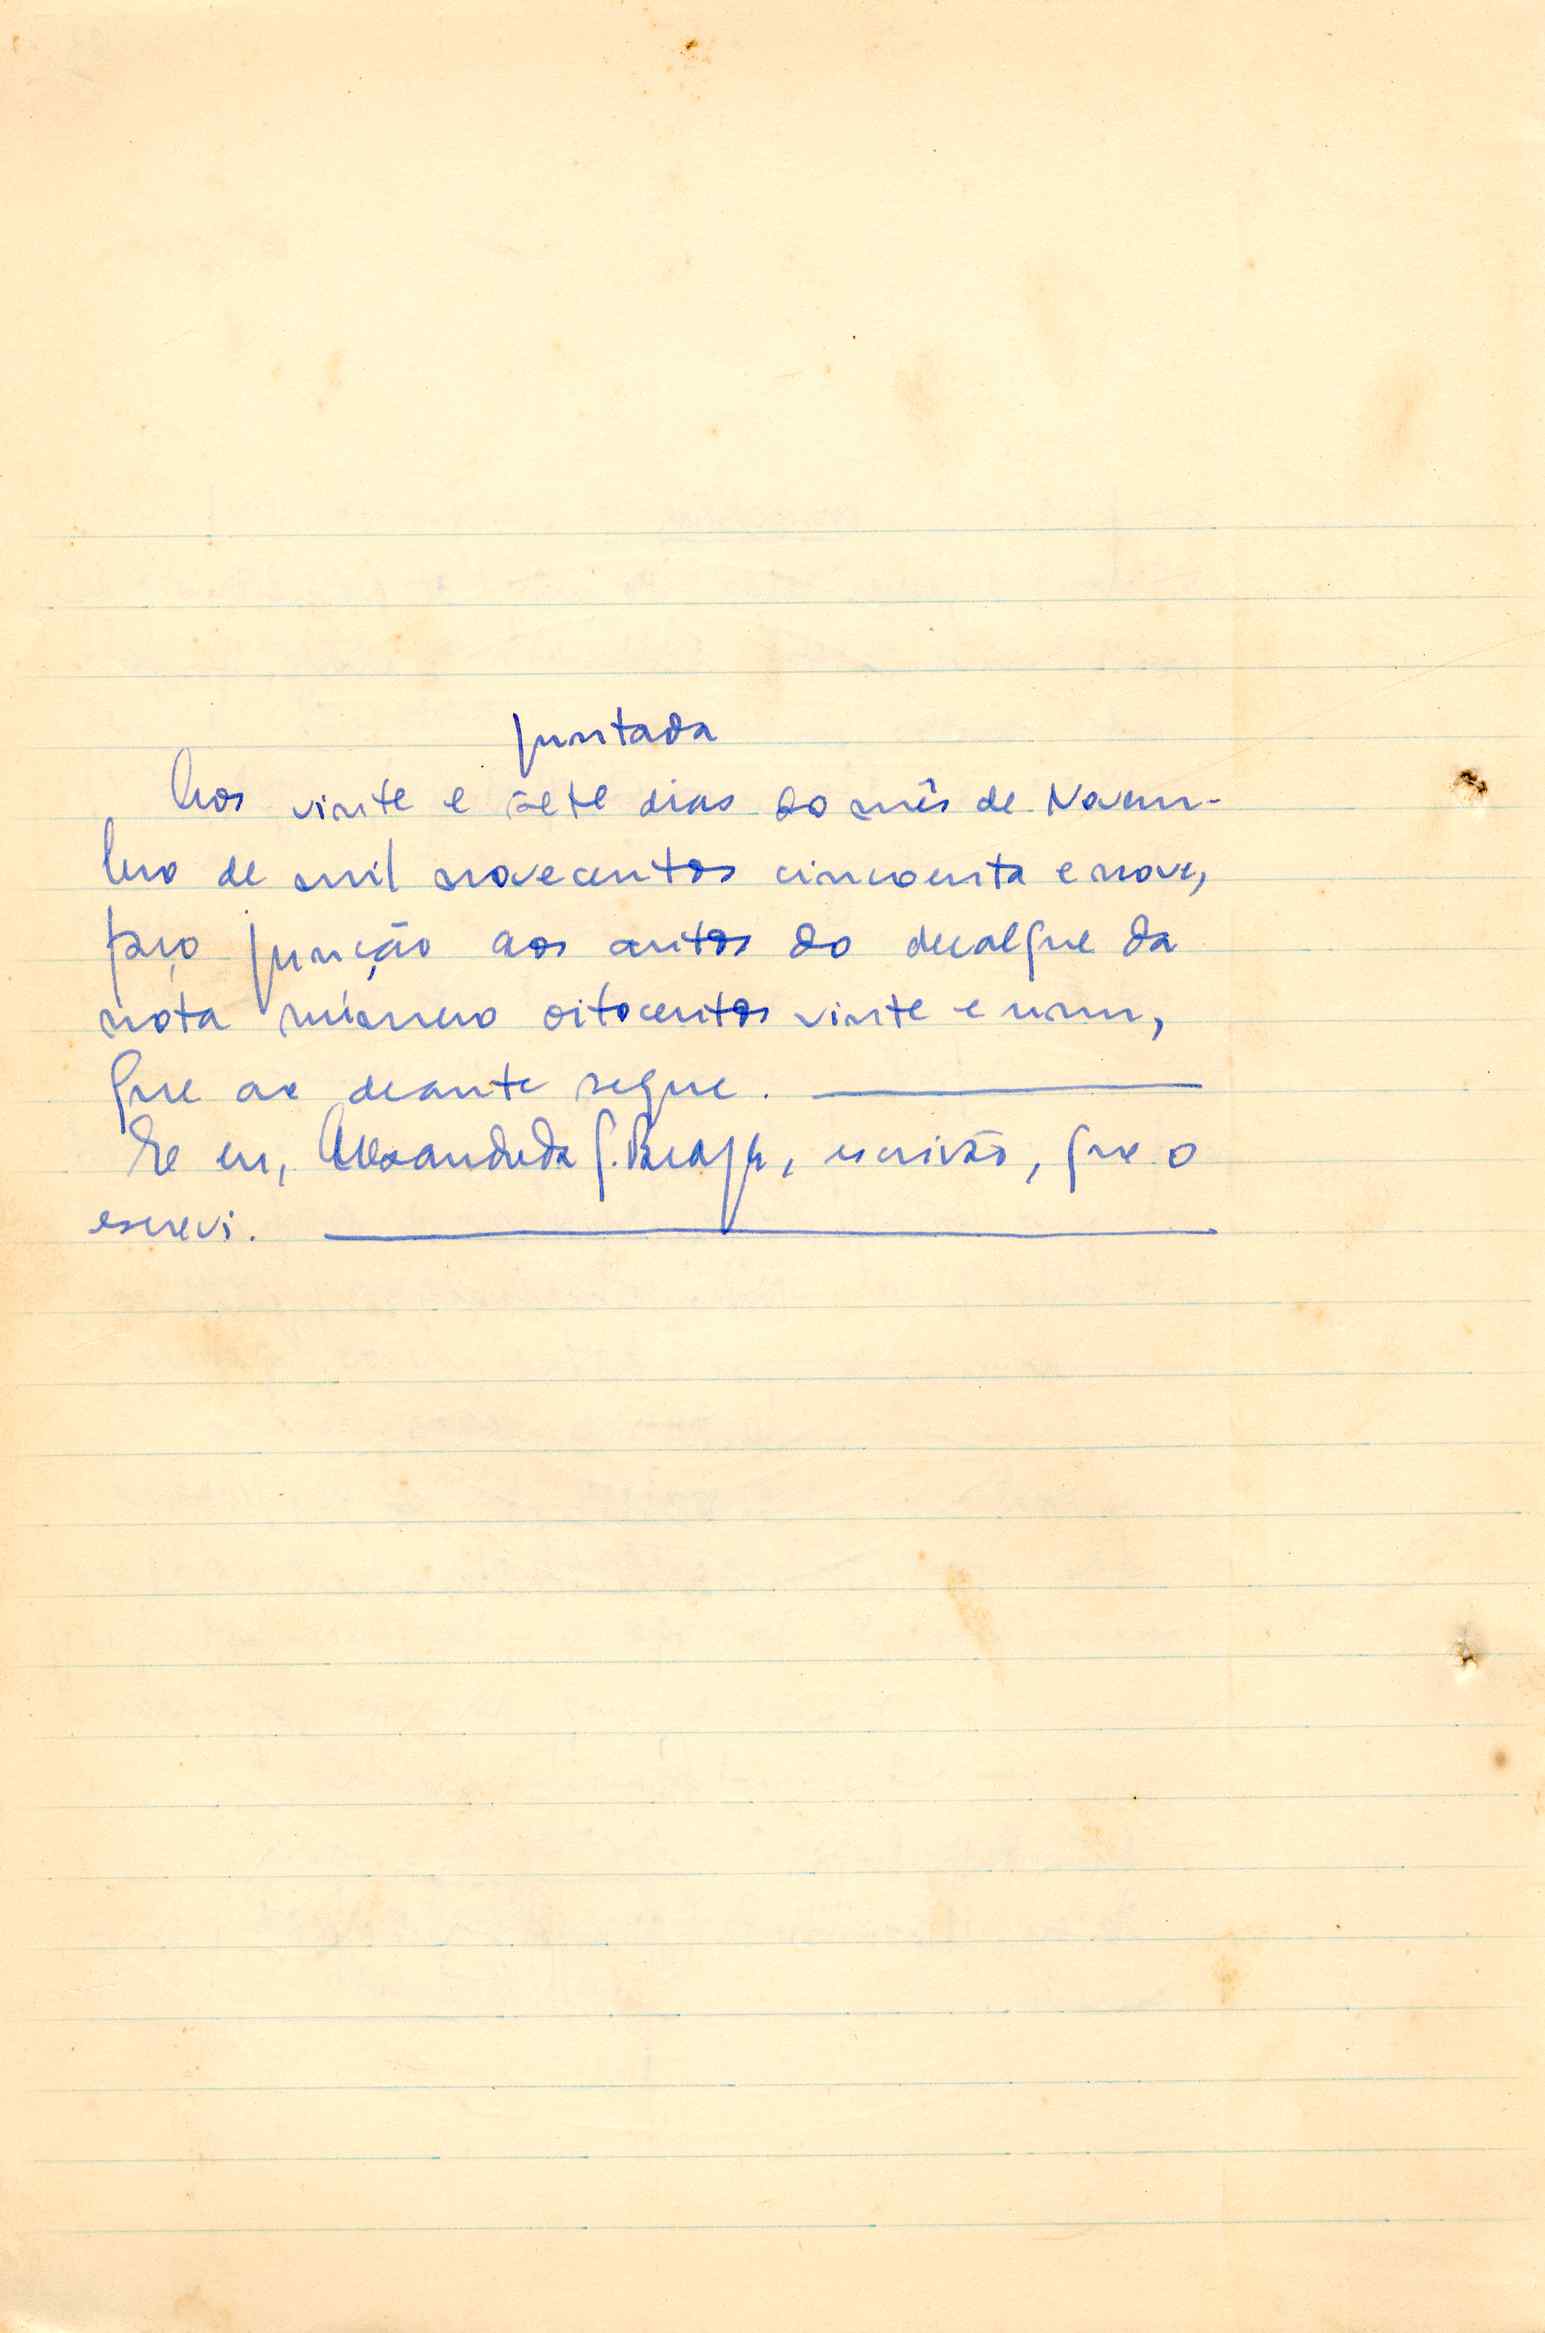 Juntada
Aos vinte e sete dias do mês de Novem-
bro de mil novecentos cincoenta e nove,
faço junção aos autos do decalque da
nota número oitocentos vinte e um,
que ao deante segue.
E eu, Alexandre da G. Braga, escrivão, que o
escrevi.